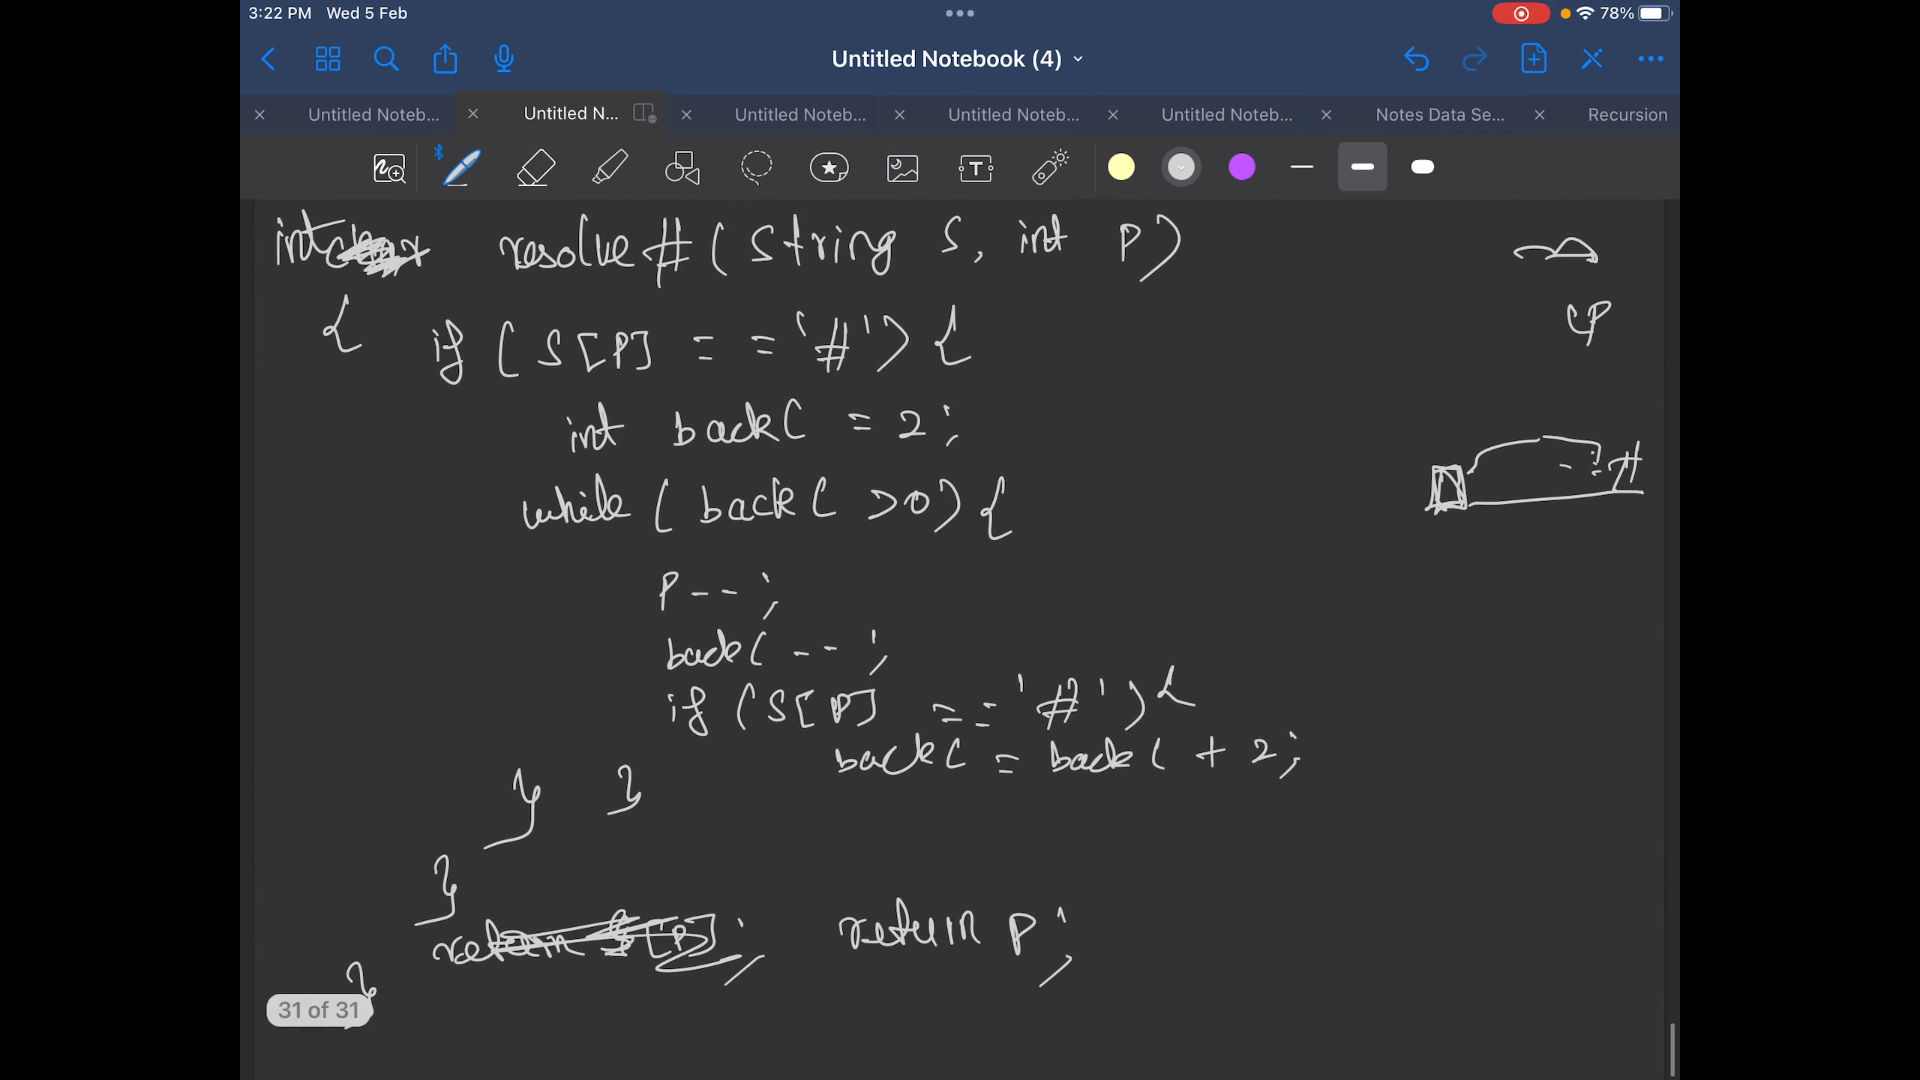 3:22 PM Wed 5 Feb 78%
Untitled Notebook (4)
Untitled Noteb... Untitled N... Untitled Noteb... Untitled Noteb... Untitled Noteb... Notes Data Se... Recursion
int resolve#(String S, int P)
{ if (S[P] == '#') {
int backC = 2;
while (backC >0) {
P--;
backC --;
if (S[P] == '#') {
backC = backC + 2;
} }
}
return S[P]; return P;
}
31 of 31
CP
#